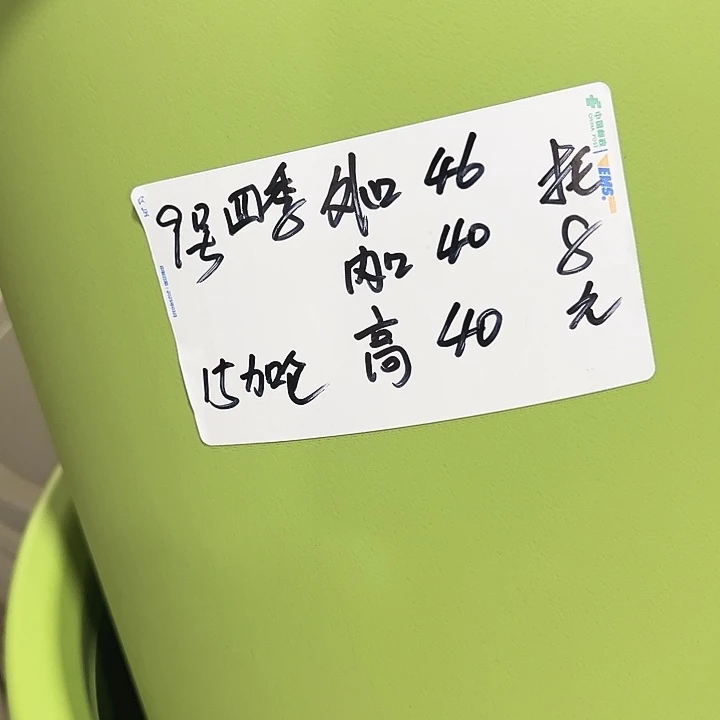 9号四季 外口 46 托
内口 40 8
15加仑 高 40 元
中国邮政
CHINA POST
EMS